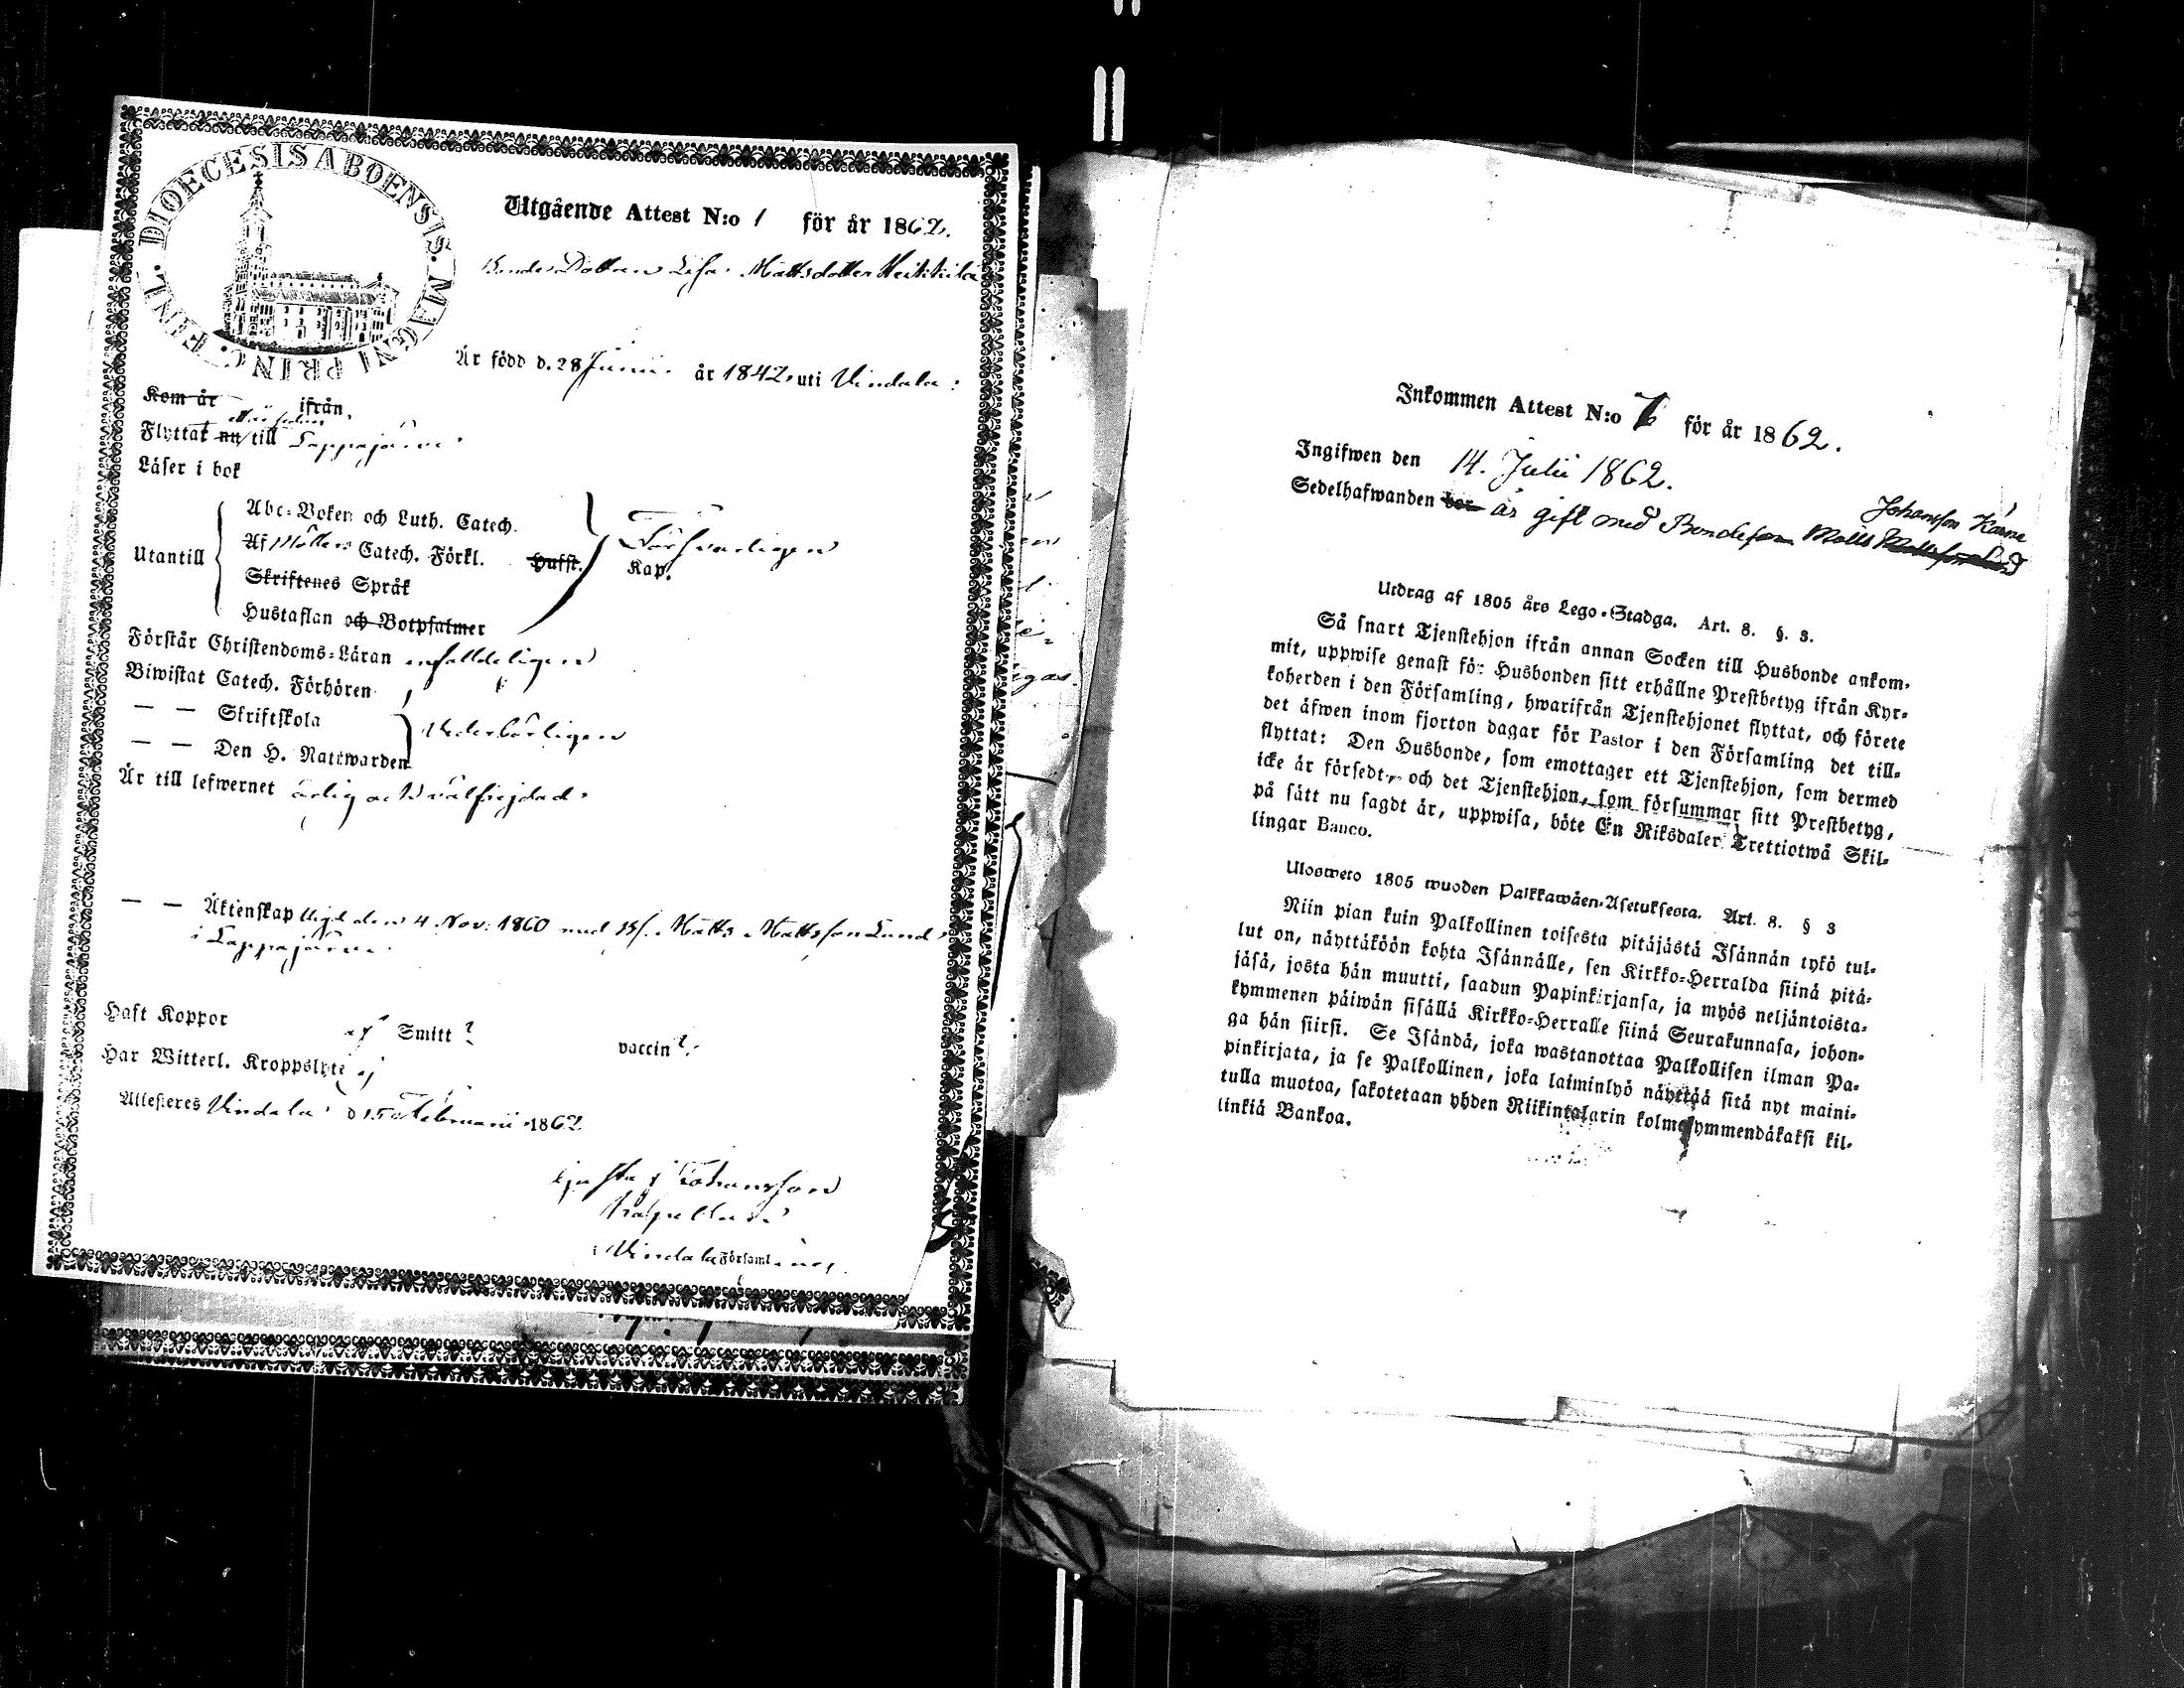 DIOECESIS ABOENSIS. MAGNI PRINC. FINL.
Utgående Attest N:o 1 för år 1862.
Bonde Dottren Lisa Mattsdotter Heikkilä
Är född d. 28 Junii år 1842 uti Vindala:
Kom år ifrån,
Flyttat nu till Lappajärvi
Läser i bok
Utantill
Abc-Boken och Luth. Catech.
Af Möllers Catech. Förkl. Hufst. Försvarligen Kap.
Skriftenes Språk
Hustaflan och Botpsalmer
Förstår Christendoms-Läran enfaldeligen
Biwistat Catech. Förhören
— — Skriftskola Vederbörligen
— — Den H. Nattwarden
Är till lefwernet ärlig och välfrejdad.
— — Äktenskap vigd den 4 Nov. 1860 med Bs. Matts Mattsson Lund
i Lappajärvi.
Haft Koppor af Smitt? vaccin?
Har Witterl. Kroppslyte ej
Attesteres Vindala d 15 Februarii 1862
Gusta J Johansson
Kapellan
i Vindala Församling.
Inkommen Attest N:o 7 för år 1862.
Ingifwen den 14. Julii 1862.
Johansson
Sedelhafwanden bor är gift med Bondeson Matts
Utdrag af 1805 års Lego-Stadga. Art. 8. §. 3.
Så snart Tjenstehjon ifrån annan Socken till Husbonde ankom-
mit, uppwise genast för Husbonden sitt erhållne Prestbetyg ifrån Kyr-
koherden i den Församling, hwarifrån Tjenstehjonet flyttat, och förete
det äfwen inom fjorton dagar för Pastor i den Församling det till-
flyttat: Den Husbonde, som emottager ett Tjenstehjon, som dermed
icke är försedt, och det Tjenstehjon, som försummar sitt Prestbetyg,
på sätt nu sagdt är, uppwisa, böte En Riksdaler Trettiotwå Skil-
lingar Banco.
Ulosweto 1805 wuoden Palkkawäen-Asetuksesta. Art. 8. § 3
Niin pian kuin Palkollinen toisesta pitäjästä Isännän tykö tul-
lut on, näyttäköön kohta Isännälle, sen Kirkko-Herralda siinä pitä-
jäsä, josta hän muutti, saadun Papinkirjansa, ja myös neljäntoista-
kymmenen päiwän sisällä Kirkko-Herralle siinä Seurakunnasa, johon-
ga hän siirsi. Se Isändä, joka wastanottaa Palkollisen ilman Pa-
pinkirjata, ja se Palkollinen, joka laiminlyö näyttää sitä nyt maini-
tulla muotoa, sakotetaan yhden Riikintalarin kolmekymmendäkaksi kil-
linkiä Bankoa.